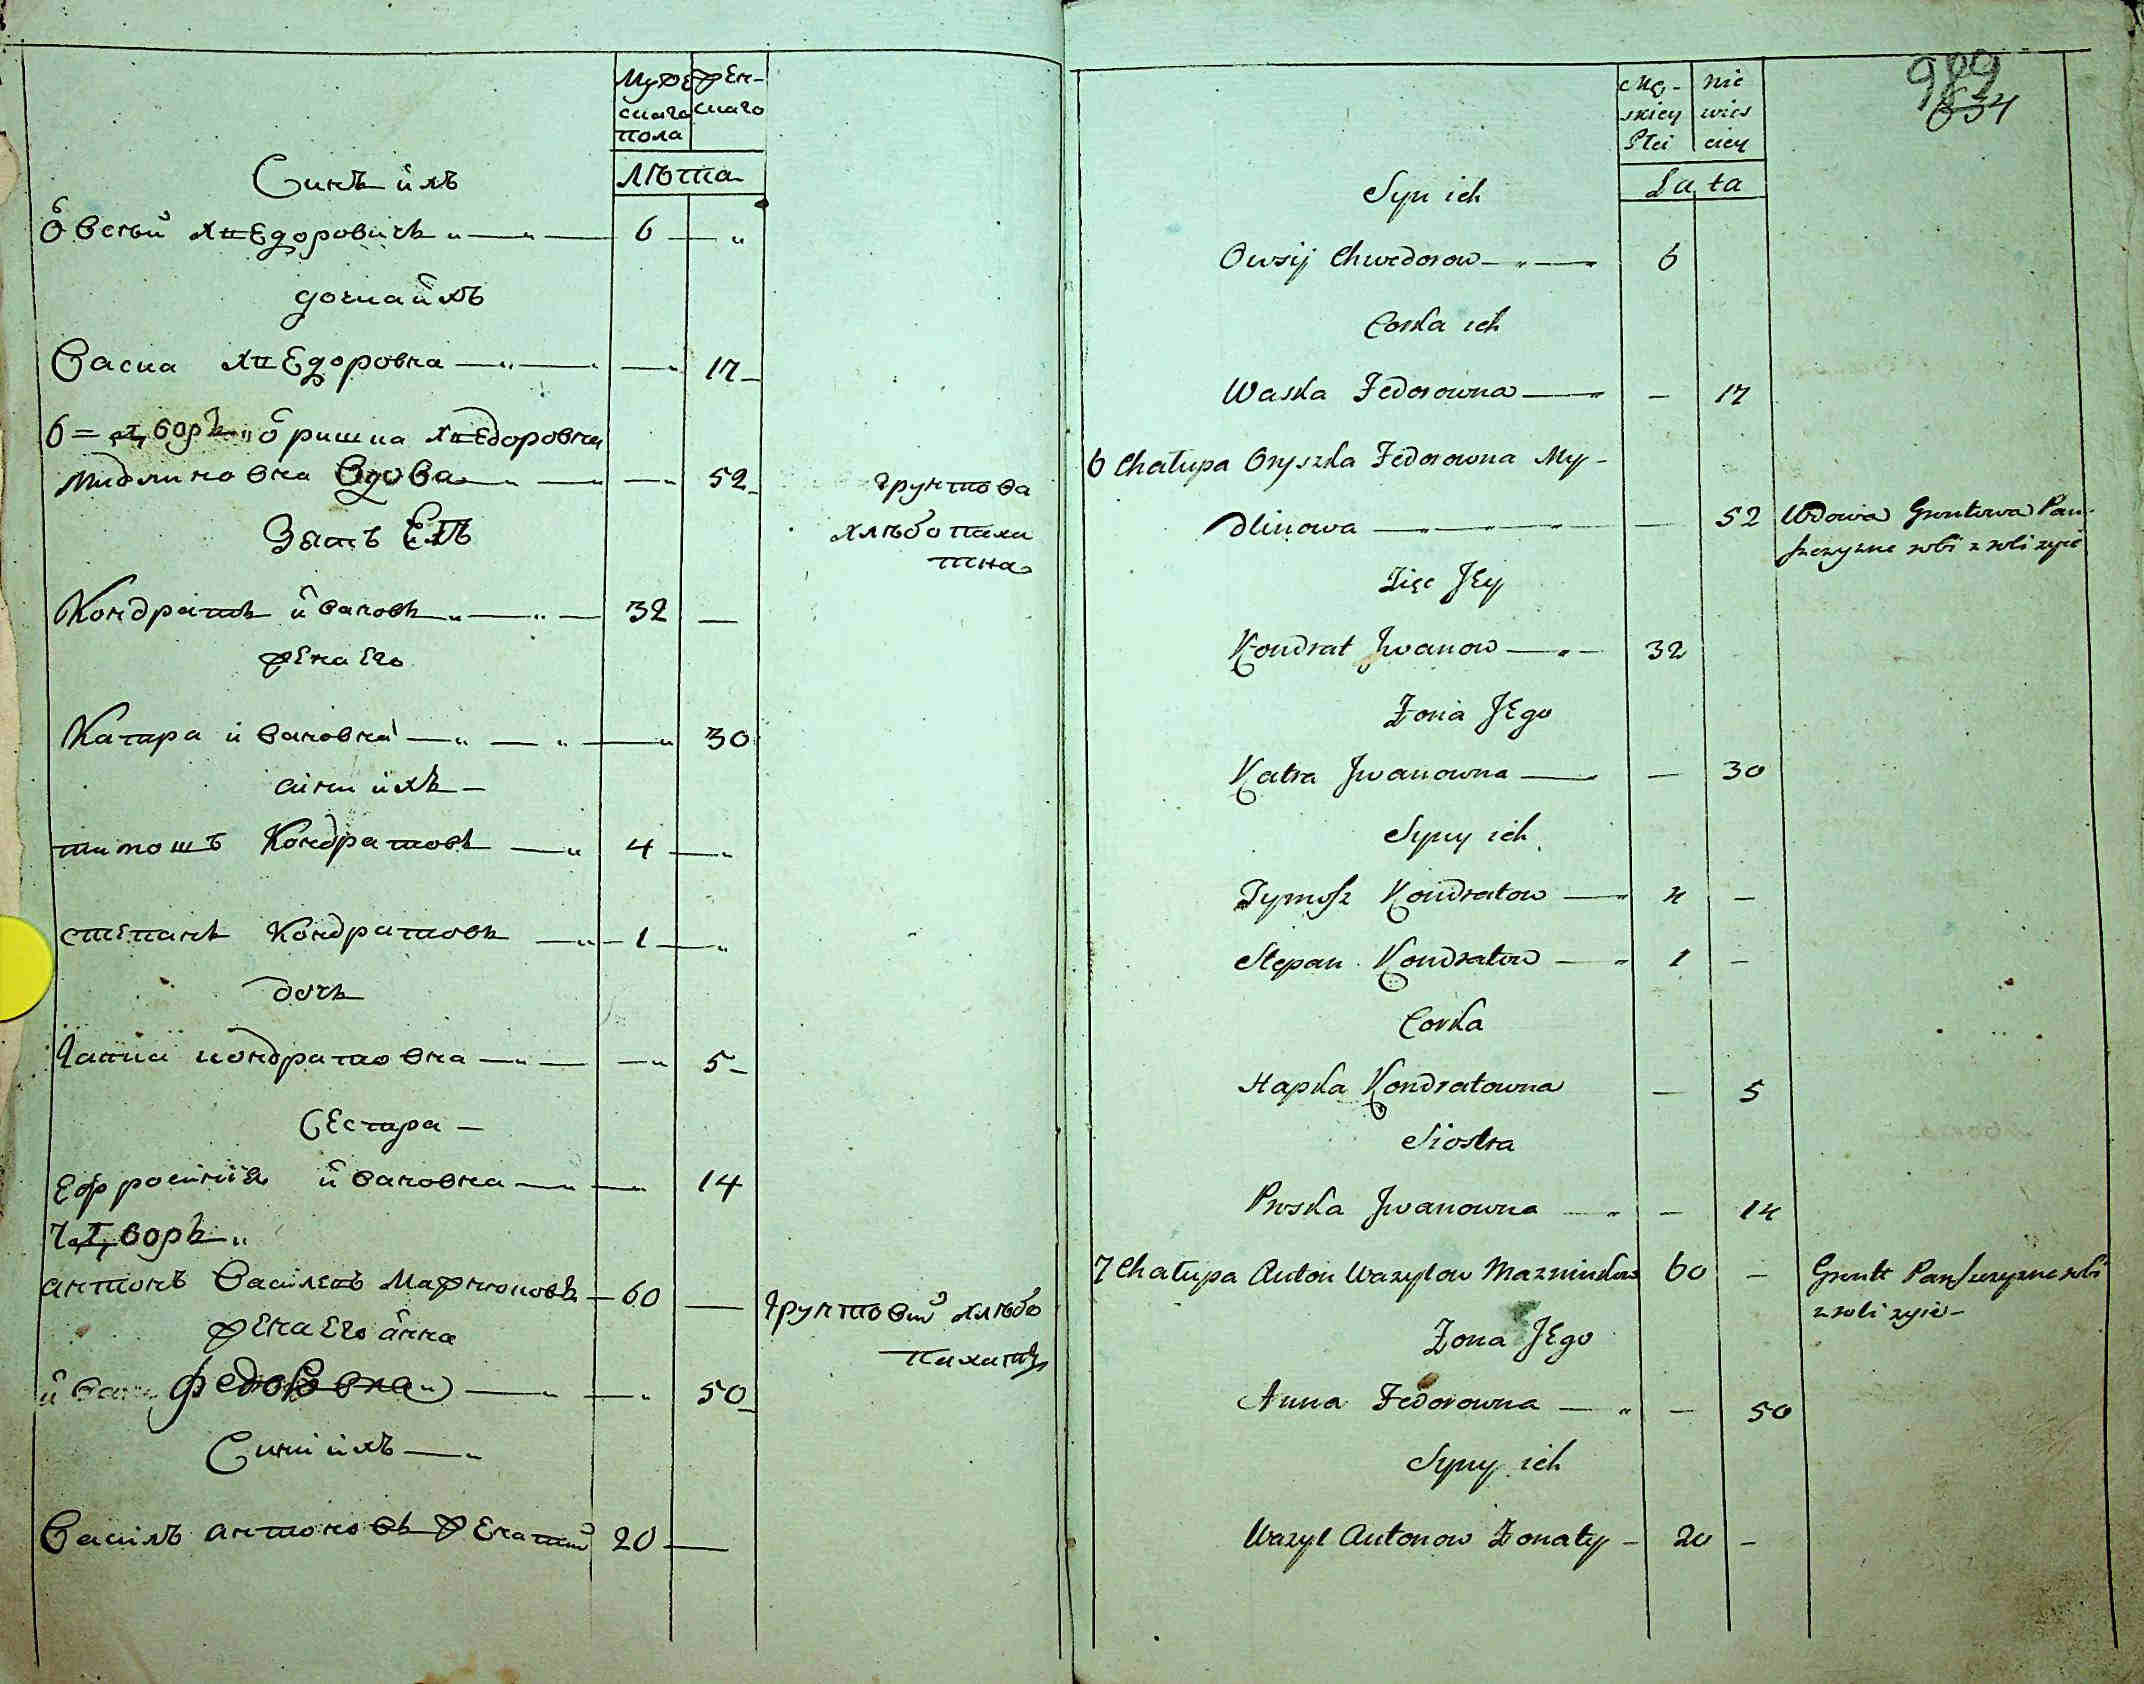 Муже
скага
пола
женскаго
Лѣта
Синъ ихъ
Овсѣй Хведоровичъ 6
дочка ихъ
Васка Хведоровна 17
6 = Дворъ Оришка Хведоровна
мидлиновна вдова 52
грунтова
хлѣбопаха
тна
Зять Еѣ
Кондратъ ивановъ 32
жена Его
Катра ивановна 30
сини ихъ
тимошъ Кондратовъ 4
степанъ Кондратовъ 1
дочь
Гапка кондратовна 5
Сестра
Ефросиния ивановна 14
7 Дворъ
антонъ Василевъ 60
жена Его анна
грунтовий хлѣбо
пахатц
Федоровна 50
Сини ихъ
Василъ антоновъ женатий 20
989
634
Mę-
skiey
Płci
nie
wies
ciey
Lata
Syn ich
Owsij Chwedorow 6
Corka ich
Waska Fedorowna - 17
6 Chałupa Oryszka Fedorowna My-
dlinowa - 52
Wdowa Gruntowa Pan-
szczyzne robi z roli zyie
Zięc JEy
Kondrat Jwanow 32
Zona JEgo
Katra Jwanowna - 30
Syny ich
Tymosz Kondratow 4 -
Stepan Kondratow 1 -
Corka
Hapka Kondratowna - 5
Siostra
Pruska Jwanowna - 14
7 Chałupa Anton Wazylow 60 -
Grunt Panszczyzne robi
z roli zyie-
Zona JEgo
Anna Fedorowna - 50
Syny ich
Wazyl Antonow Zonaty - 20 -